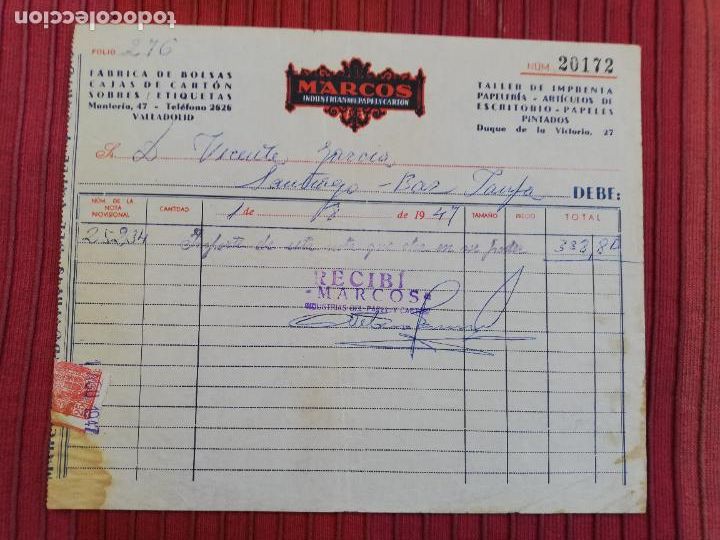 todocoleccion
FOLIO 276
NÚM. 20172
FABRICA DE BOLSAS
CAJAS DE CARTÓN
SOBRES / ETIQUETAS
Montería, 47 - Teléfono 2626
VALLADOLID
MARCOS
INDUSTRIAS DEL PAPEL Y CARTON
TALLER DE IMPRENTA
PAPELERÍA - ARTÍCULOS DE
ESCRITORIO - PAPELES
PINTADOS
Duque de la Victoria, 27
Sr. D. Vicente García
Santiago - Bar DEBE:
NÚM. DE LA NOTA PROVISIONAL CANTIDAD 1 de de 1947 TAMAÑO PRECIO TOTAL
25234 Importe de esta nota que obra en su poder 333,80
RECIBÍ
MARCOS
INDUSTRIAS DEL PAPEL Y CARTON
1947
todocoleccion.net